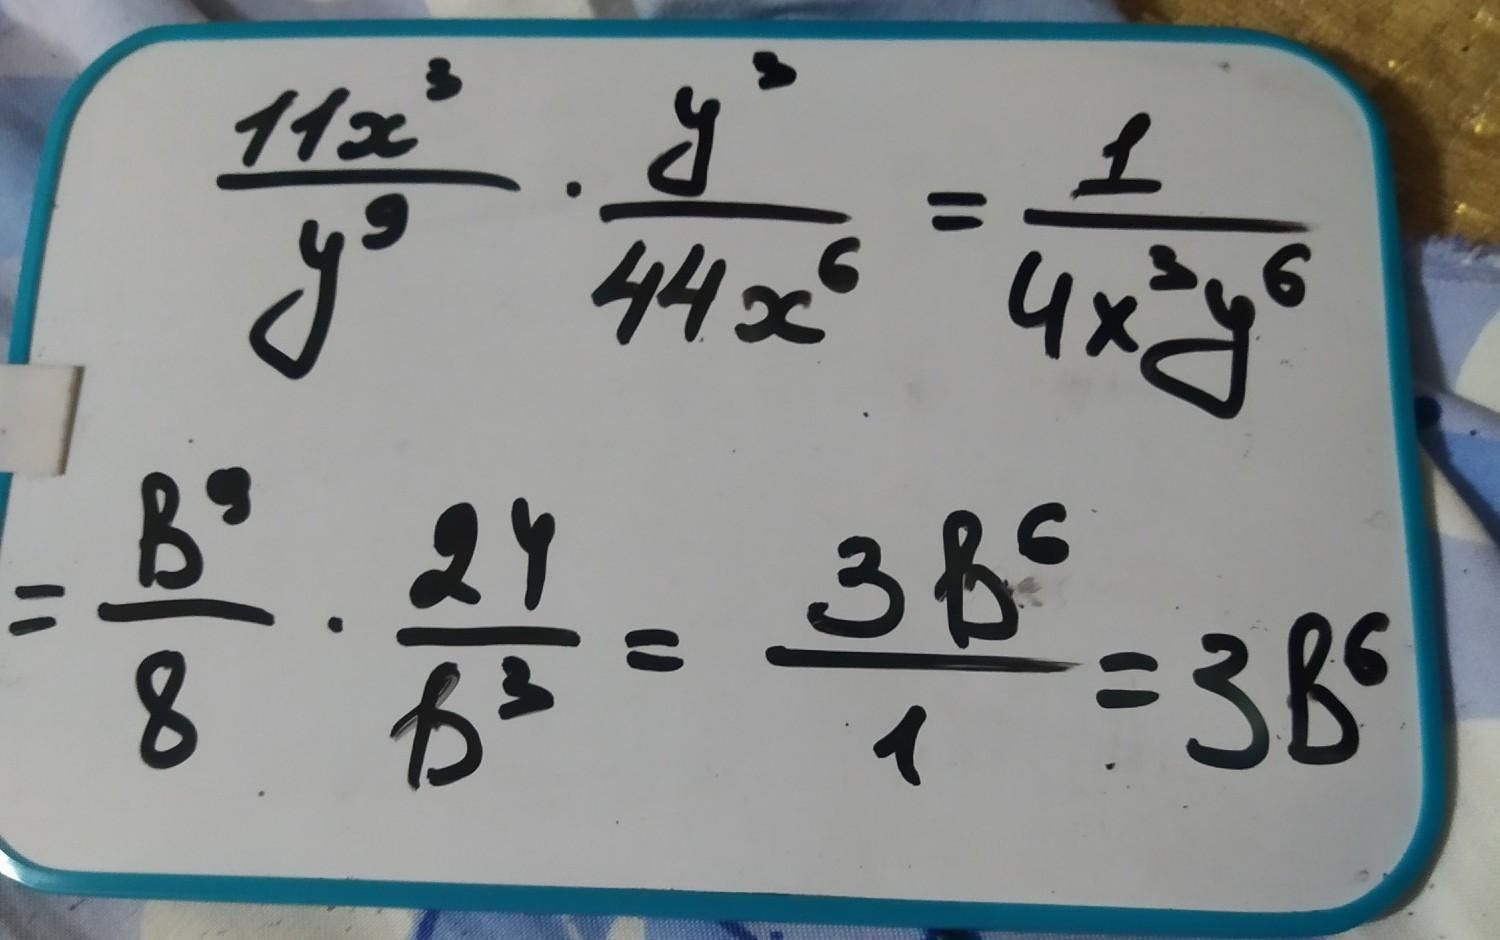 11x³/y⁹ · y³/44x⁶ = 1/4x³y⁶
= B⁹/8 · 24/B³ = 3B⁶/1 = 3B⁶